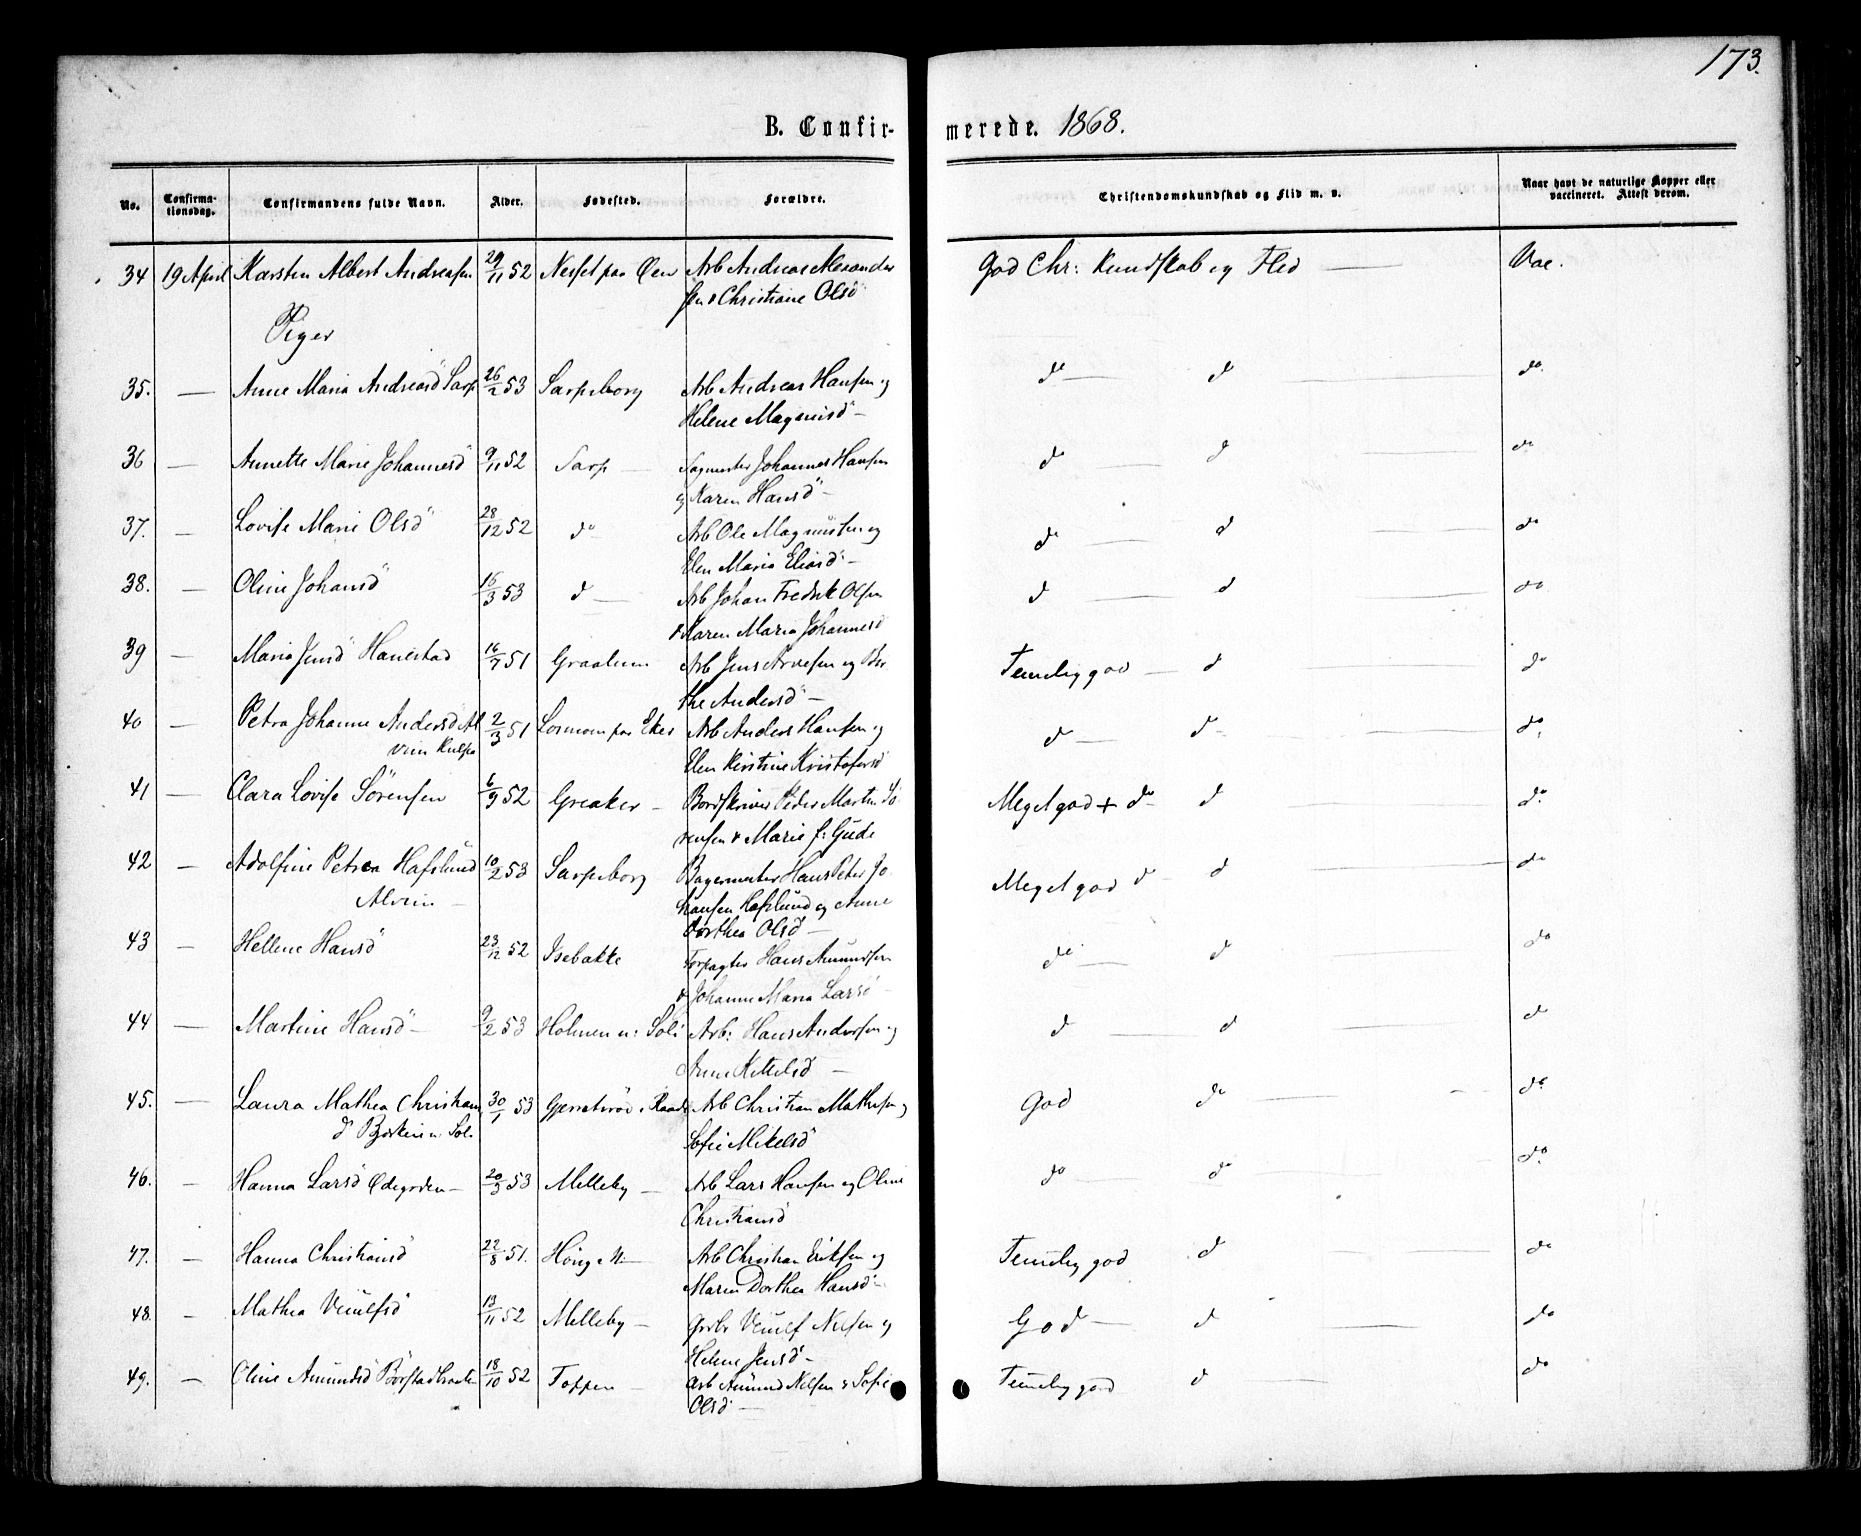 173.
B. Confir- merede. 1868.
No. Confirma- tionsdag. Confirmandens fulde Navn. Alder. Fødested. Forældre. Christendomskundskab og Flid m. v. Naar havt de naturlige Kopper eller vaccineret. Attest derom.
34 19 April Karsten Albert Andreasen 29/11 52 Nesset paa Øen Arb Andreas Alexander God Chr: Kundskab og Flid — Vac.
sen & Christiane Olsd
Piger
35. — Anne Maria Andreasd Sarp 26/2 53 Sarpsborg Arb Andreas Hansen og do — do do.
Helene Magnusd —
36 — Annette Marie Johannesd 9/11 52 Sarp — Sagmester Johannes Hansen do — d do
og Karen Hansd —
37. — Lovise Marie Olsd 28/12 52 do Arb Ole Magnussen og do — d do
Elen Maria Eliasd —
38. — Oline Johansd 16/3 53 d — Arb Johan Fredrik Olsen d — d do
& Karen Maria Johannesd
39 — Maria Jensd Hanestad 16/7 51 Graalum Arb Jens Arvesen og Ber Temelig god — d do
the Andersd —
40 — Petra Johanne Andersd Al 2/3 51 Lormom paa Eker Arb Anders Hansen og do — do do
vim Kulpa
Elen Kirstine Kristofersd
41 — Clara Lovise Sörensen 6/9 52 Greaker — Bordskriver Peder Martin Sö Meget god + do d do
rensen & Marie f: Gude
42 — Adolfine Petrea Hafslund 10/2 53 Sarpsborg Bagermester Hans Peter Jo Meget god do — d do
Alvim —
hansen Hafslund og Anne
Dorthea Olsd —
43 — Hellene Hansd 23/12 52 Isebakke Forpagter Hans Amundsen do — d do
& Johanne Maria Larsd —
44 — Martine Hansd — 9/2 53 Holmen u: Soli Arb: Hans Andersen og d d do
Anne Kittelsd —
45. — Laura Mathea Christians 30/1 53 i Raade Arb Christian Mathisen og God do — do
d u. Soli
Sofie Mikelsd
46. — Hanna Larsd Ødegorden — 20/3 53 Melleby — Arb Lars Hansen og Oline do — do do
Christiansd
47. — Hanna Christiansd 22/8 51. Arb Christian Eriksen og Temelig god d do
Maren Dorthea Hansd —
48. — Mathea Venulfsd 13/11 52 Melleby — Grbr Venulf Nilsen og God — d do
Helene Jensd —
49. — Oline Amundsd 18/10 52 Toppen — Arb Amund Nilsen & Sofie Temelig god d do
Olsd —